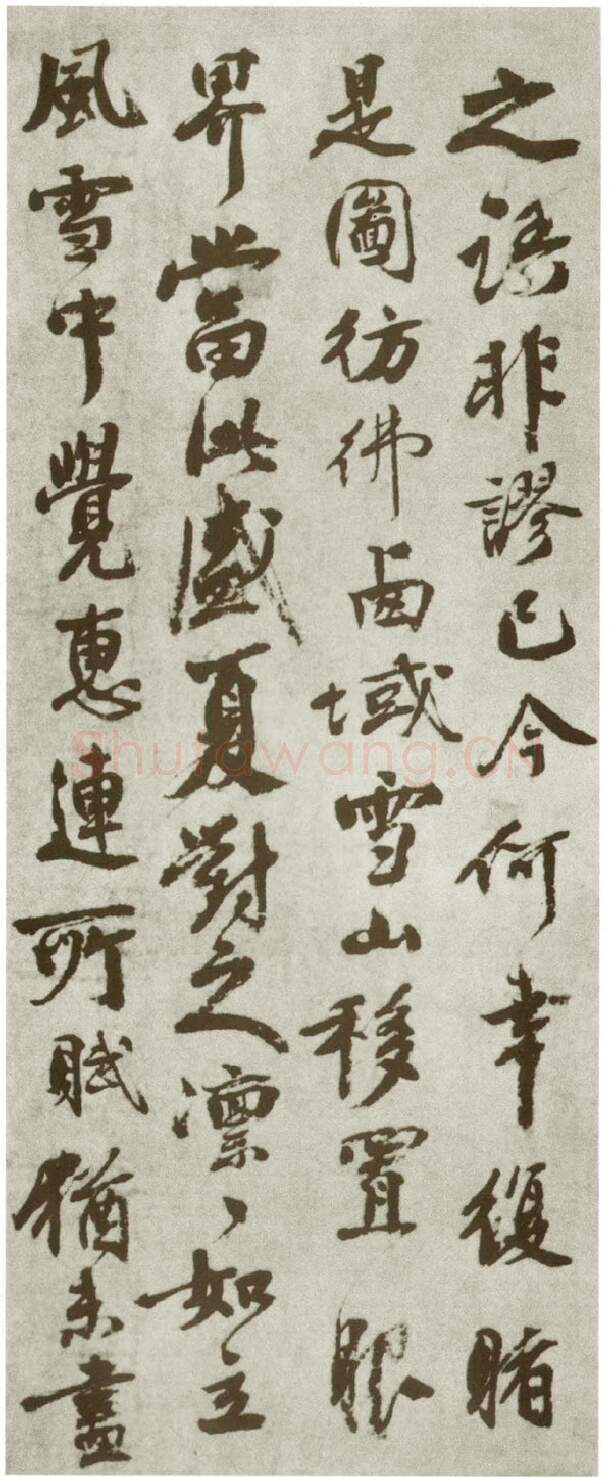 之語非謬已今何幸復睹
是圖彷彿鹵域雪山移置眼
界當此盛夏對之凛〻如立
風雪中覺惠連所賦猶未盡
Shufawang.CN